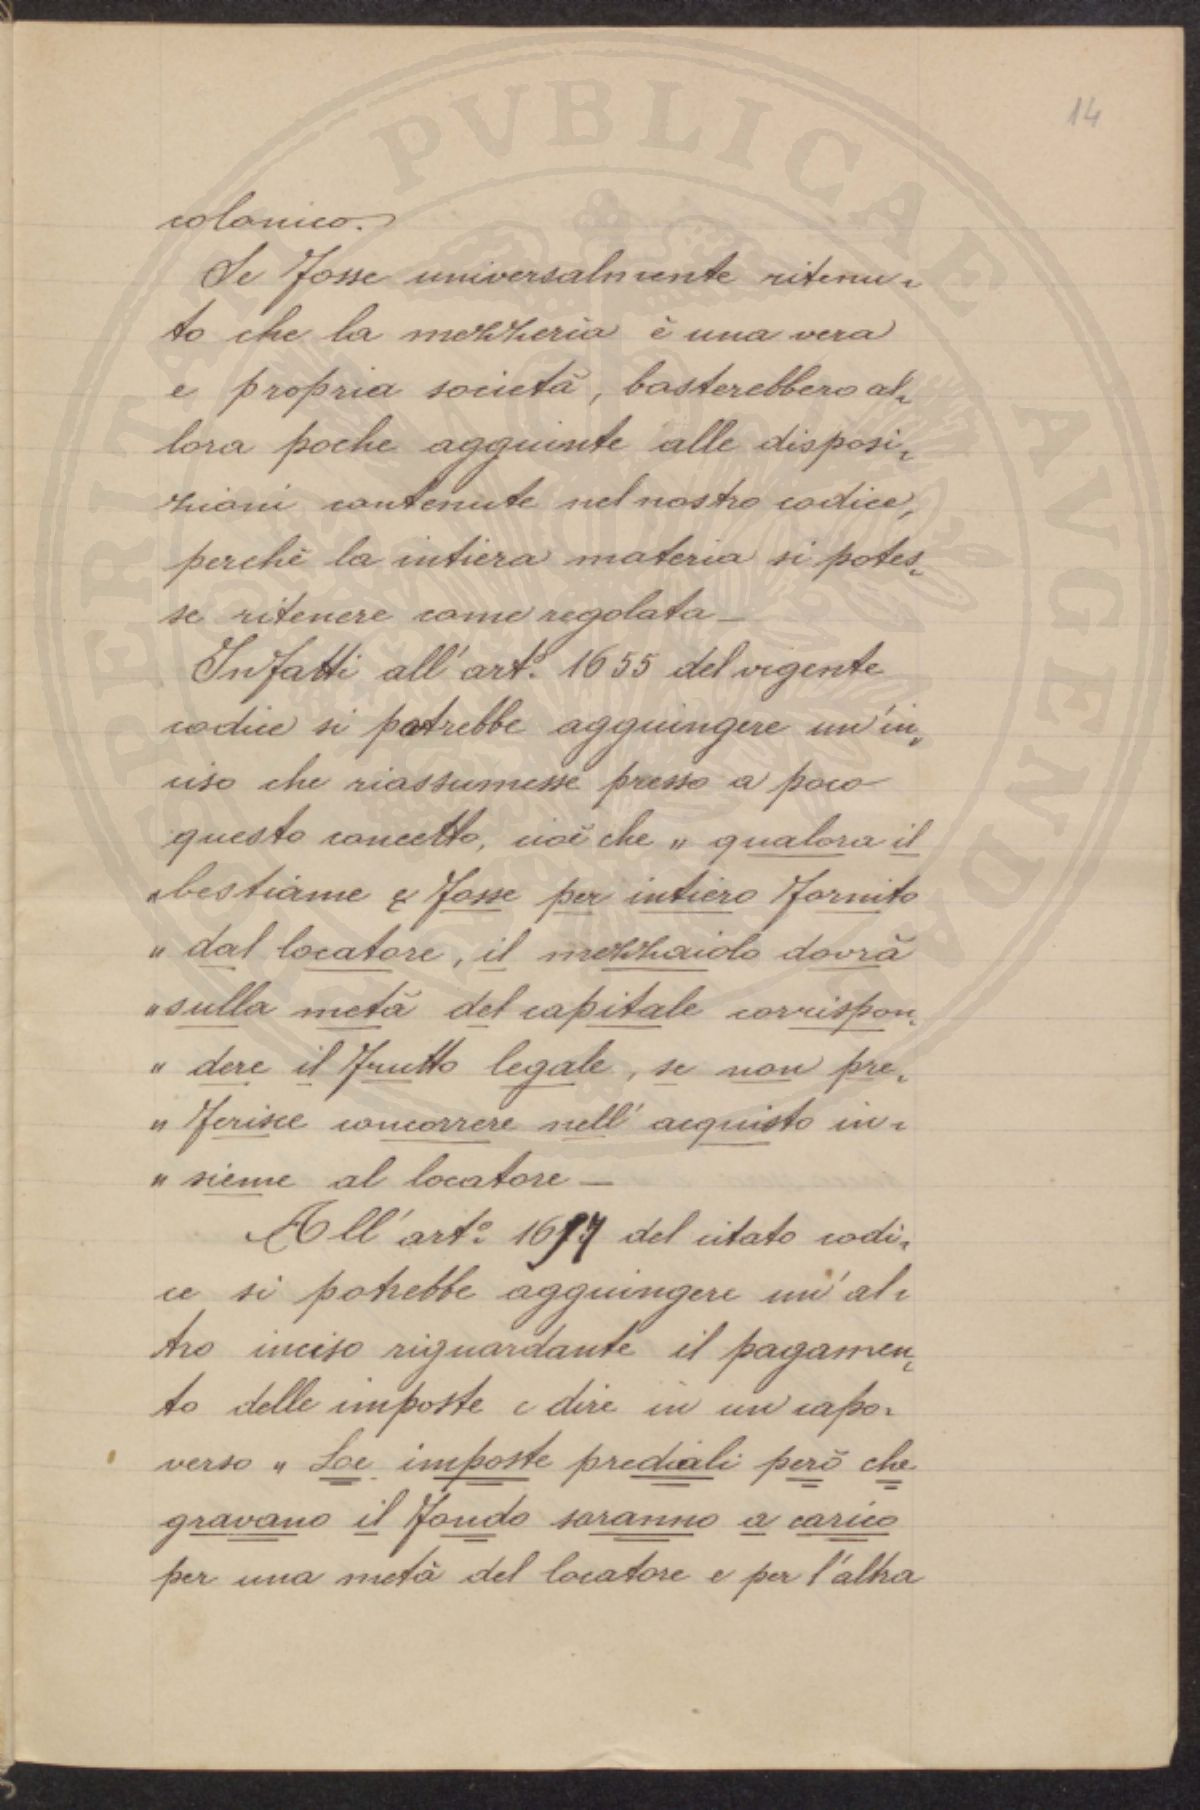 14
colonico.
Se fosse universalmente ritenu-
to che la mezzeria è una vera
e propria società, basterebbero al-
lora poche aggiunte alle disposi-
zioni contenute nel nostro codice,
perchè la intiera materia si potes-
se ritenere come regolata —
Infatti all'art.° 1655 del vigente
codice si potrebbe aggiungere un'in-
ciso che riassumesse presso a poco
questo concetto, cioè che „ qualora il
„ bestiame fosse per intiero fornito
„ dal locatore, il mezzaiolo dovrà
„ sulla metà del capitale corrispon-
„ dere il frutto legale, se non pre-
„ ferisce concorrere nell'acquisto in-
„ sieme al locatore —
All'art.° del citato codi-
ce si potrebbe aggiungere un'al-
tro inciso riguardante il pagamen-
to delle imposte e dire in un capo-
verso „ Le imposte prediali però che
gravano il fondo saranno a carico
per una metà del locatore e per l'altra
PVBLICAE AVGENDAE